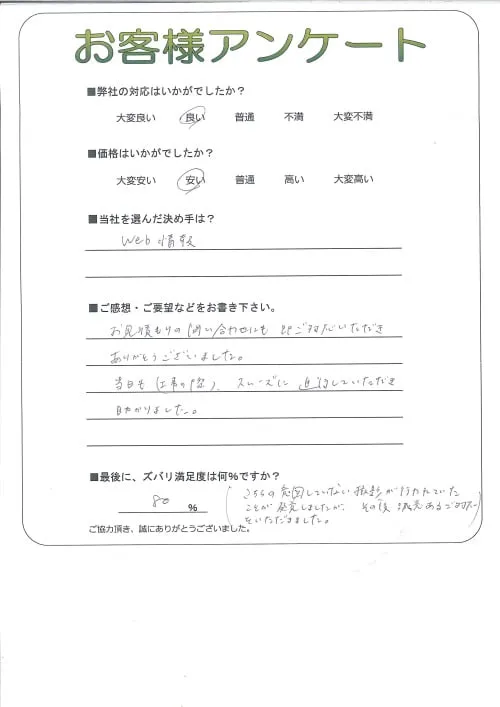 お客様アンケート
■弊社の対応はいかがでしたか？
大変良い 良い 普通 不満 大変不満
■価格はいかがでしたか？
大変安い 安い 普通 高い 大変高い
■当社を選んだ決め手は？
Web情報
■ご感想・ご要望などをお書き下さい。
お見積もりの問い合わせにも 即ご対応いただき
ありがとうございました。
当日も (工事の際)、スムーズに 進行していただき
助かりました。
■最後に、ズバリ満足度は何%ですか？
80 %
(こちらの意図していない 抜粋が行われていた
ことが発覚しましたが、その後 誠意あるご対応
をいただきました。)
ご協力頂き、誠にありがとうございました。